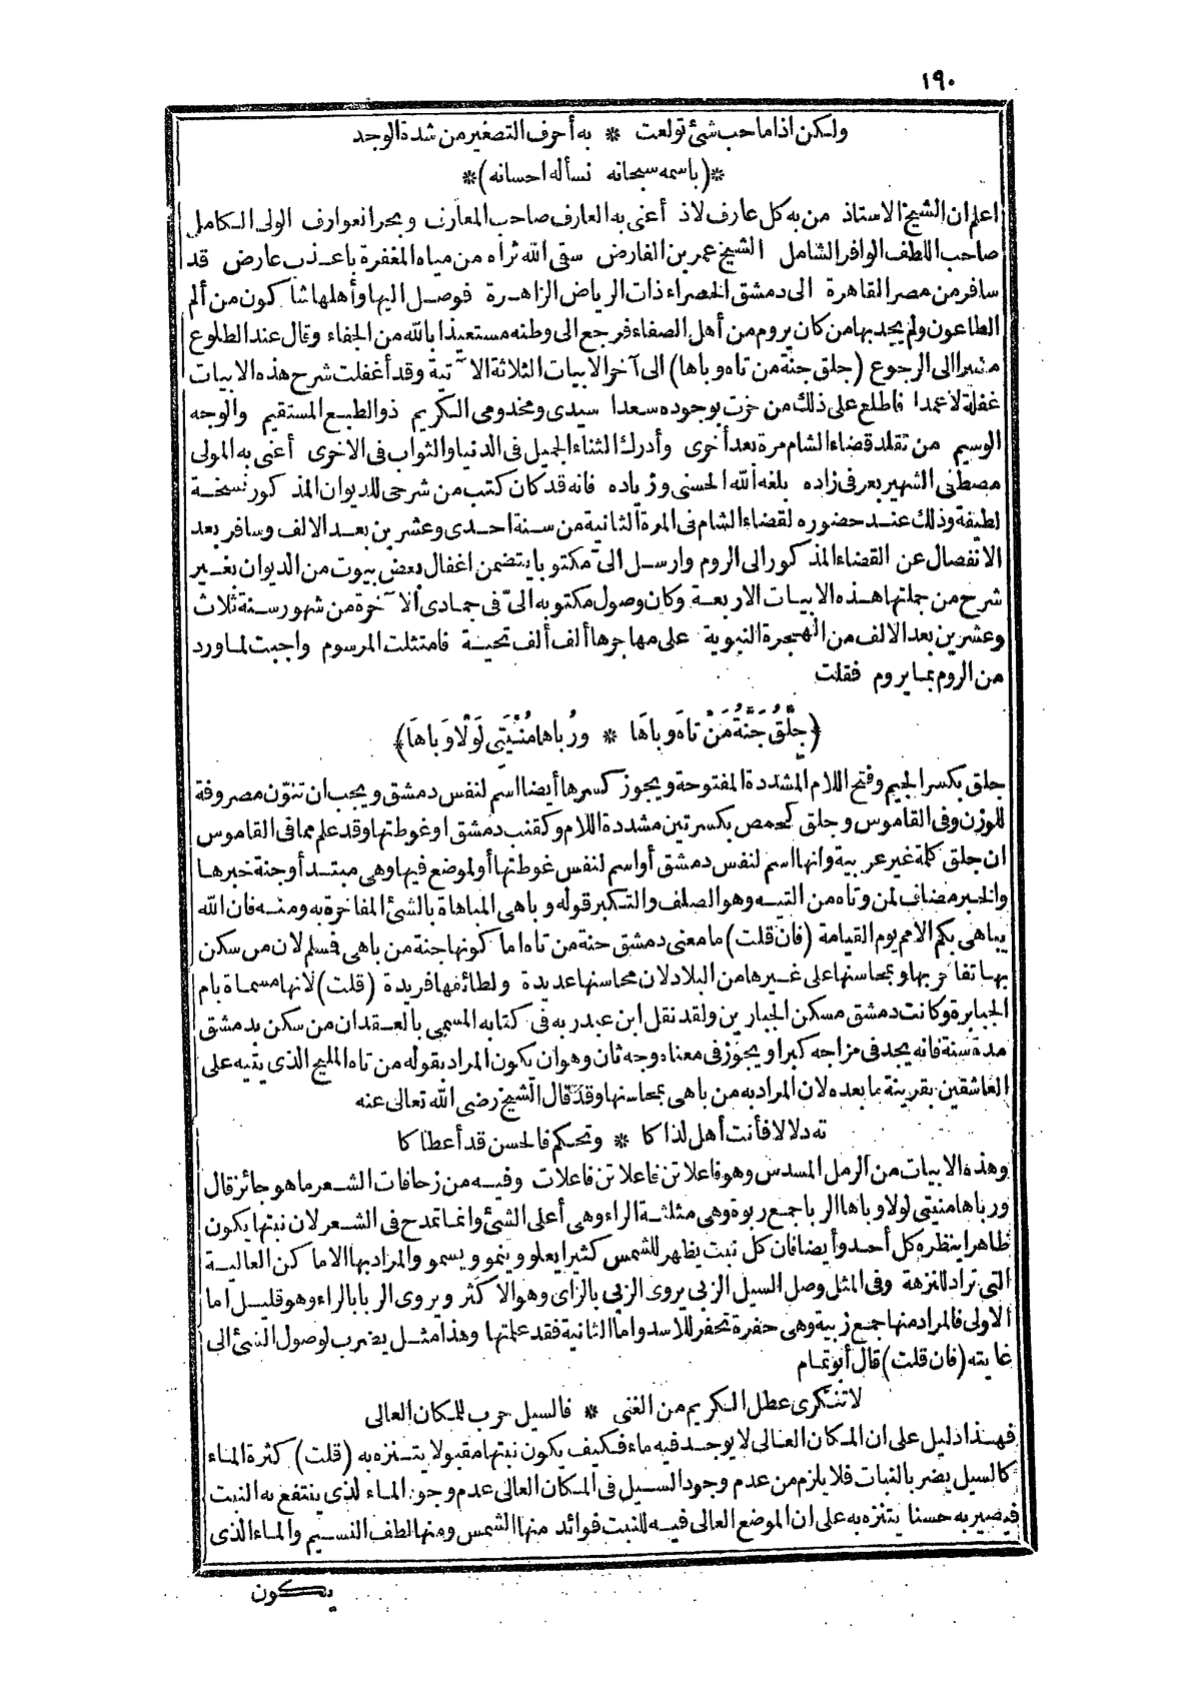 ١٩٠
ولكن اذا ما حب شئ تولعت * به أحرف التصغير من شدة الوجد
*(باسمه سبحانه نسأله احسانه)*
اعلم ان الشيخ الاستاذ من به كل عارف لاذ أعنى به العارف صاحب المعارف وبحر العوارف الولى الكامل
صاحب اللطف الوافر الشامل الشيخ عمر بن الفارض سقى الله ثراه من مياه المغفرة باعذب عارض قد
سافر من مصر القاهرة الى دمشق الخضراء ذات الرياض الزاهرة فوصل اليها وأهلها شاكون من ألم
الطاعون ولم يجد بها من كان يروم من أهل الصفاء فرجع الى وطنه مستعيذا بالله من الجفاء وقال عند الطلوع
مشيرا الى الرجوع (جلق جنة من تاه وباها) الى آخر الابيات الثلاثة الآتية وقد أغفلت شرح هذه الابيات
غفلة لا عمدا فاطلع على ذلك من حزت بوجوده سعدا سيدى ومخدومى الكريم ذو الطبع المستقيم والوجه
الوسيم من تقلد قضاء الشام مرة بعد أخرى وأدرك الثناء الجميل فى الدنيا والثواب فى الاخرى أعنى به المولى
مصطفى الشهير بعرفى زاده بلغه الله الحسنى وزياده فانه قد كان كتب من شرحى للديوان المذكور نسخة
لطيفة وذلك عند حضوره لقضاء الشام فى المرة الثانية من سنة احدى وعشرين بعد الالف وسافر بعد
الانفصال عن القضاء المذكور الى الروم وارسل الىّ مكتوبا يتضمن اغفال بعض بيوت من الديوان بغير
شرح من جملتها هذه الابيات الاربعة وكان وصول مكتوبه الىّ فى جمادى الآخرة من شهور سنة ثلاث
وعشرين بعد الالف من الهجرة النبوية على مهاجرها ألف ألف تحية فامتثلت المرسوم واجبت لما ورد
من الروم بما يروم فقلت
﴿جِلَّقُ جَنَّةُ مَنْ تاهَ وباهَا * ورُباها مُنْيَتِي لَوْلا وَباهَا﴾
جلق بكسر الجيم وفتح اللام المشددة المفتوحة ويجوز كسرها أيضا اسم لنفس دمشق ويجب ان تنوّن مصروفة
للوزن وفى القاموس وجلق كحمص بكسرتين مشددة اللام وكقنب دمشق او غوطتها وقد علم مما فى القاموس
ان جلق كلمة غير عربية وانها اسم لنفس دمشق أو اسم لنفس غوطتها أو لموضع فيها وهى مبتدأ وجنة خبرها
والخبر مضاف لمن وتاه من التيه وهو الصلف والتكبر قوله وباهى المباهاة بالشئ المفاخرة به ومنه فان الله
يباهى بكم الامم يوم القيامة (فان قلت) ما معنى دمشق جنة من تاه اما كونها جنة من باهى فمسلم لان من سكن
بها تفاخر بها وبمحاسنها على غيرها من البلاد لان محاسنها عديدة ولطائفها فريدة (قلت) لانها مسماة بام
الجبابرة وكانت دمشق مسكن الجبارين ولقد نقل ابن عبد ربه فى كتابه المسمى بالعقد ان من سكن بدمشق
مدة سنة فانه يجد فى مزاجه كبرا ويجوز فى معناه وجه ثان وهو ان يكون المراد بقوله من تاه المليح الذى يتيه على
العاشقين بقرينة ما بعده لان المراد به من باهى بمحاسنها وقد قال الشيخ رضى الله تعالى عنه
ته دلالا فأنت أهل لذاكا * وتحكم فالحسن قد أعطاكا
وهذه الابيات من الرمل المسدس وهو فاعلاتن فاعلاتن فاعلات وفيه من زحافات الشعر ما هو جائز قال
ورباها منيتى لولا وباها الربا جمع ربوة وهى مثلثة الراء وهى أعلى الشئ وانما تمدح فى الشعر لان نبتها يكون
ظاهرا ينظره كل أحد وأيضا فان كل نبت يظهر للشمس كثيرا يعلو وينمو ويسمو والمراد بها الاماكن العالية
التى تراد للنزهة وفى المثل وصل السيل الزبى يروى الزبى بالزاى وهو الاكثر ويروى الربا بالراء وهو قليل اما
الاولى فالمراد منها جمع زبية وهى حفرة تحفر للاسد واما الثانية فقد علمتها وهذا مثل يضرب لوصول الشئ الى
غايته (فان قلت) قال أبو تمام
لا تنكرى عطل الكريم من الغنى * فالسيل حرب للمكان العالى
فهذا دليل على ان المكان العالى لا يوجد فيه ماء فكيف يكون نبتها مقبولا يتنزه به (قلت) كثرة الماء
كالسيل يضر بالنبات فلا يلزم من عدم وجود السيل فى المكان العالى عدم وجود الماء لذى ينتفع به النبت
فيصير به حسنا يتنزه به على ان الموضع العالى فيه للنبت فوائد منها الشمس ومنها لطف النسيم والماء الذى
يكون